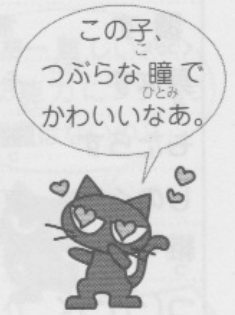 この子、
つぶらな瞳で
かわいいなあ。